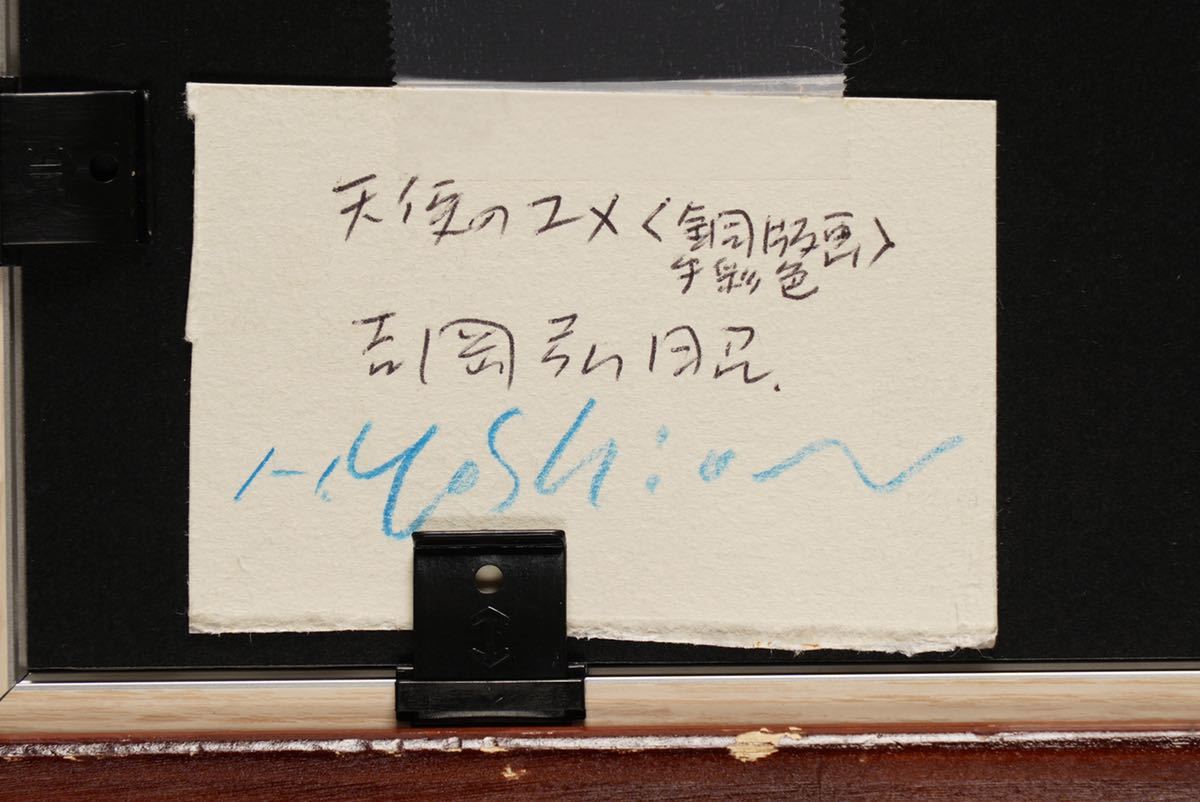 天使のユメ〈銅版画〉
手彩色
吉岡弘昭.
H.Yoshioka